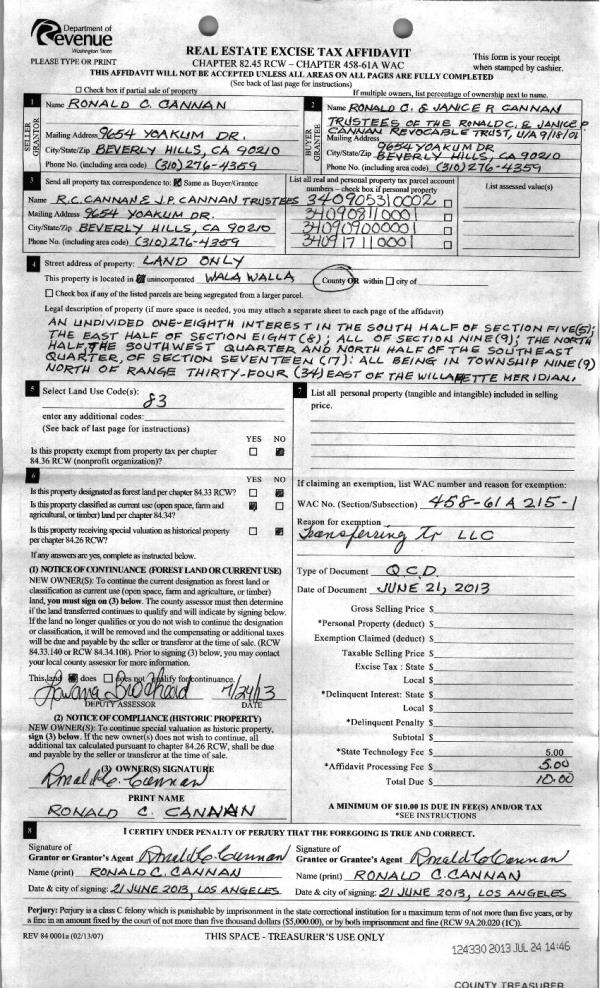 Department of
Revenue
Washington State
PLEASE TYPE OR PRINT
REAL ESTATE EXCISE TAX AFFIDAVIT
CHAPTER 82.45 RCW – CHAPTER 458-61A WAC
This form is your receipt
when stamped by cashier.
THIS AFFIDAVIT WILL NOT BE ACCEPTED UNLESS ALL AREAS ON ALL PAGES ARE FULLY COMPLETED
(See back of last page for instructions)
Check box if partial sale of property
If multiple owners, list percentage of ownership next to name.
1 Name RONALD C. CANNAN
SELLER
GRANTOR
Mailing Address 9654 YOAKUM DR.
City/State/Zip BEVERLY HILLS, CA 90210
Phone No. (including area code) (310) 276-4359
2 Name RONALD C. & JANICE P. CANNAN
TRUSTEES OF THE RONALD C. & JANICE P.
CANNAN REVOCABLE TRUST, U/A 9/18/01
BUYER
GRANTEE
Mailing Address 9654 YOAKUM DR
City/State/Zip BEVERLY HILLS, CA 90210
Phone No. (including area code) (310) 276-4359
3 Send all property tax correspondence to: Same as Buyer/Grantee
Name R.C. CANNAN & J.P. CANNAN TRUSTEES
Mailing Address 9654 YOAKUM DR.
City/State/Zip BEVERLY HILLS, CA 90210
Phone No. (including area code) (310) 276-4359
List all real and personal property tax parcel account
numbers – check box if personal property
340905310002
340908110001
340909000001
340917110001
List assessed value(s)
4 Street address of property: LAND ONLY
This property is located in unincorporated WALA WALLA County OR within city of
Check box if any of the listed parcels are being segregated from a larger parcel.
Legal description of property (if more space is needed, you may attach a separate sheet to each page of the affidavit)
AN UNDIVIDED ONE-EIGHTH INTEREST IN THE SOUTH HALF OF SECTION FIVE(5);
THE EAST HALF OF SECTION EIGHT (8); ALL OF SECTION NINE (9); THE NORTH
HALF, THE SOUTHWEST QUARTER AND NORTH HALF OF THE SOUTHEAST
QUARTER, OF SECTION SEVENTEEN (17): ALL BEING IN TOWNSHIP NINE (9)
NORTH OF RANGE THIRTY-FOUR (34) EAST OF THE WILLAMETTE MERIDIAN.
5 Select Land Use Code(s):
83
enter any additional codes:
(See back of last page for instructions)
YES NO
Is this property exempt from property tax per chapter
84.36 RCW (nonprofit organization)?
6 YES NO
Is this property designated as forest land per chapter 84.33 RCW?
Is this property classified as current use (open space, farm and
agricultural, or timber) land per chapter 84.34?
Is this property receiving special valuation as historical property
per chapter 84.26 RCW?
If any answers are yes, complete as instructed below.
(1) NOTICE OF CONTINUANCE (FOREST LAND OR CURRENT USE)
NEW OWNER(S): To continue the current designation as forest land or
classification as current use (open space, farm and agriculture, or timber)
land, you must sign on (3) below. The county assessor must then determine
if the land transferred continues to qualify and will indicate by signing below.
If the land no longer qualifies or you do not wish to continue the designation
or classification, it will be removed and the compensating or additional taxes
will be due and payable by the seller or transferor at the time of sale. (RCW
84.33.140 or RCW 84.34.108). Prior to signing (3) below, you may contact
your local county assessor for more information.
This land does does not qualify for continuance.
7/24/13
DEPUTY ASSESSOR DATE
(2) NOTICE OF COMPLIANCE (HISTORIC PROPERTY)
NEW OWNER(S): To continue special valuation as historic property,
sign (3) below. If the new owner(s) does not wish to continue, all
additional tax calculated pursuant to chapter 84.26 RCW, shall be due
and payable by the seller or transferor at the time of sale.
(3) OWNER(S) SIGNATURE
Ronald C. Cannan
PRINT NAME
RONALD C. CANNAN
7 List all personal property (tangible and intangible) included in selling
price.
If claiming an exemption, list WAC number and reason for exemption:
WAC No. (Section/Subsection) 458-61A 215-1
Reason for exemption
Transferring to LLC
Type of Document Q.C.D.
Date of Document JUNE 21, 2013
Gross Selling Price $
*Personal Property (deduct) $
Exemption Claimed (deduct) $
Taxable Selling Price $
Excise Tax : State $
Local $
*Delinquent Interest: State $
Local $
*Delinquent Penalty $
Subtotal $
*State Technology Fee $ 5.00
*Affidavit Processing Fee $ 5.00
Total Due $ 10.00
A MINIMUM OF $10.00 IS DUE IN FEE(S) AND/OR TAX
*SEE INSTRUCTIONS
8 I CERTIFY UNDER PENALTY OF PERJURY THAT THE FOREGOING IS TRUE AND CORRECT.
Signature of
Grantor or Grantor's Agent Ronald C. Cannan
Name (print) RONALD C. CANNAN
Date & city of signing: 21 JUNE 2013, LOS ANGELES
Signature of
Grantee or Grantee's Agent Ronald C Cannan
Name (print) RONALD C. CANNAN
Date & city of signing: 21 JUNE 2013, LOS ANGELES
Perjury: Perjury is a class C felony which is punishable by imprisonment in the state correctional institution for a maximum term of not more than five years, or by
a fine in an amount fixed by the court of not more than five thousand dollars ($5,000.00), or by both imprisonment and fine (RCW 9A.20.020 (1C)).
REV 84 0001a (02/13/07)
THIS SPACE - TREASURER'S USE ONLY
124330 2013 JUL 24 14:46
COUNTY TREASURER